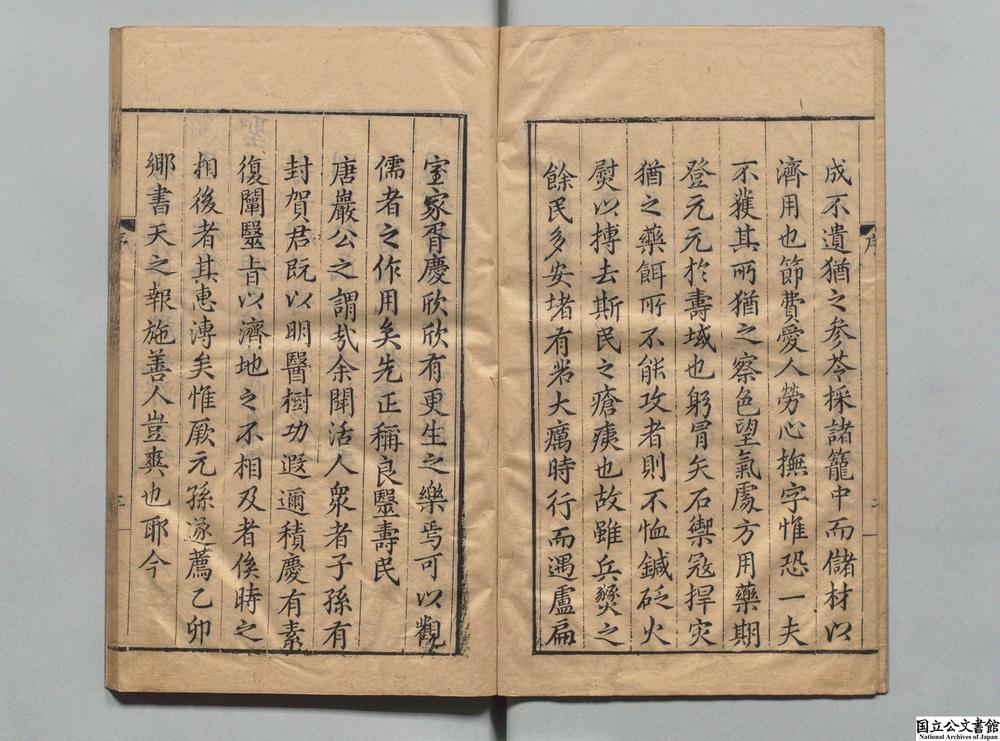 成不遺猶之参苓採諸籠中而儲材以
濟用也節費愛人勞心撫字惟恐一夫
不獲其所猶之察色望氣處方用藥期
登元元於壽域也躬冒矢石禦寇捍灾
猶之藥餌所不能攻者則不恤鍼砭火
熨以摶去斯民之瘡痍也故雖兵燹之
餘民多安堵有若大癘時行而遇盧扁
序
二
室家胥慶欣欣有更生之樂焉可以觀
儒者之作用矣先正稱良毉壽民
唐嚴公之謂哉余聞活人衆者子孫有
封賀君既以明醫樹功遐邇積慶有素
復闡毉旨以濟地之不相及者俟時之
相後者其惠溥矣惟厥元孫遂薦乙卯
鄉書天之報施善人豈爽也耶今
序
三
国立公文書館
National Archives of Japan